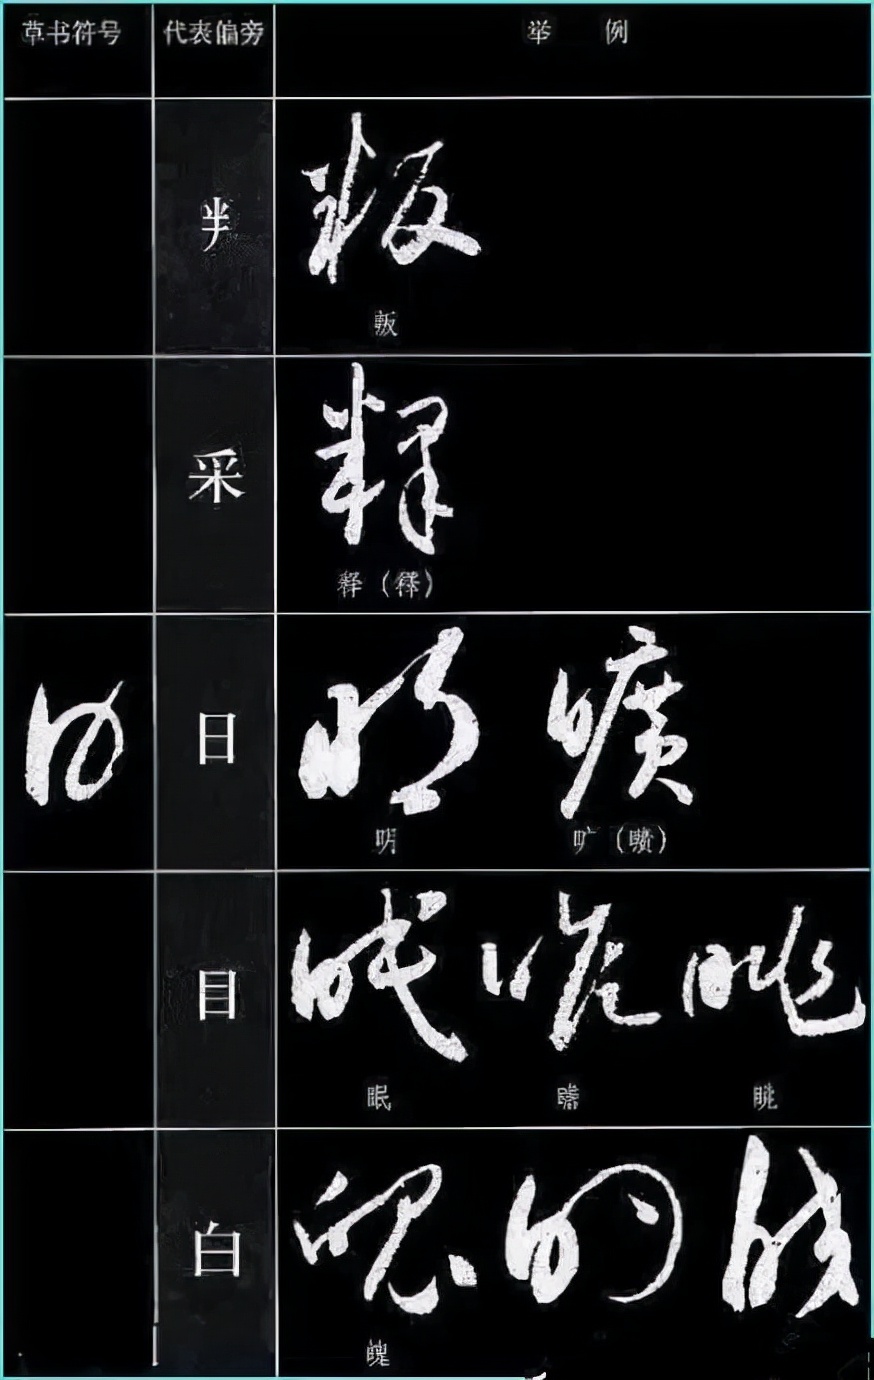 草书符号 代表偏旁 举例
叛
采
释（釋）
日
明 旷（曠）
目
眠 眺
白